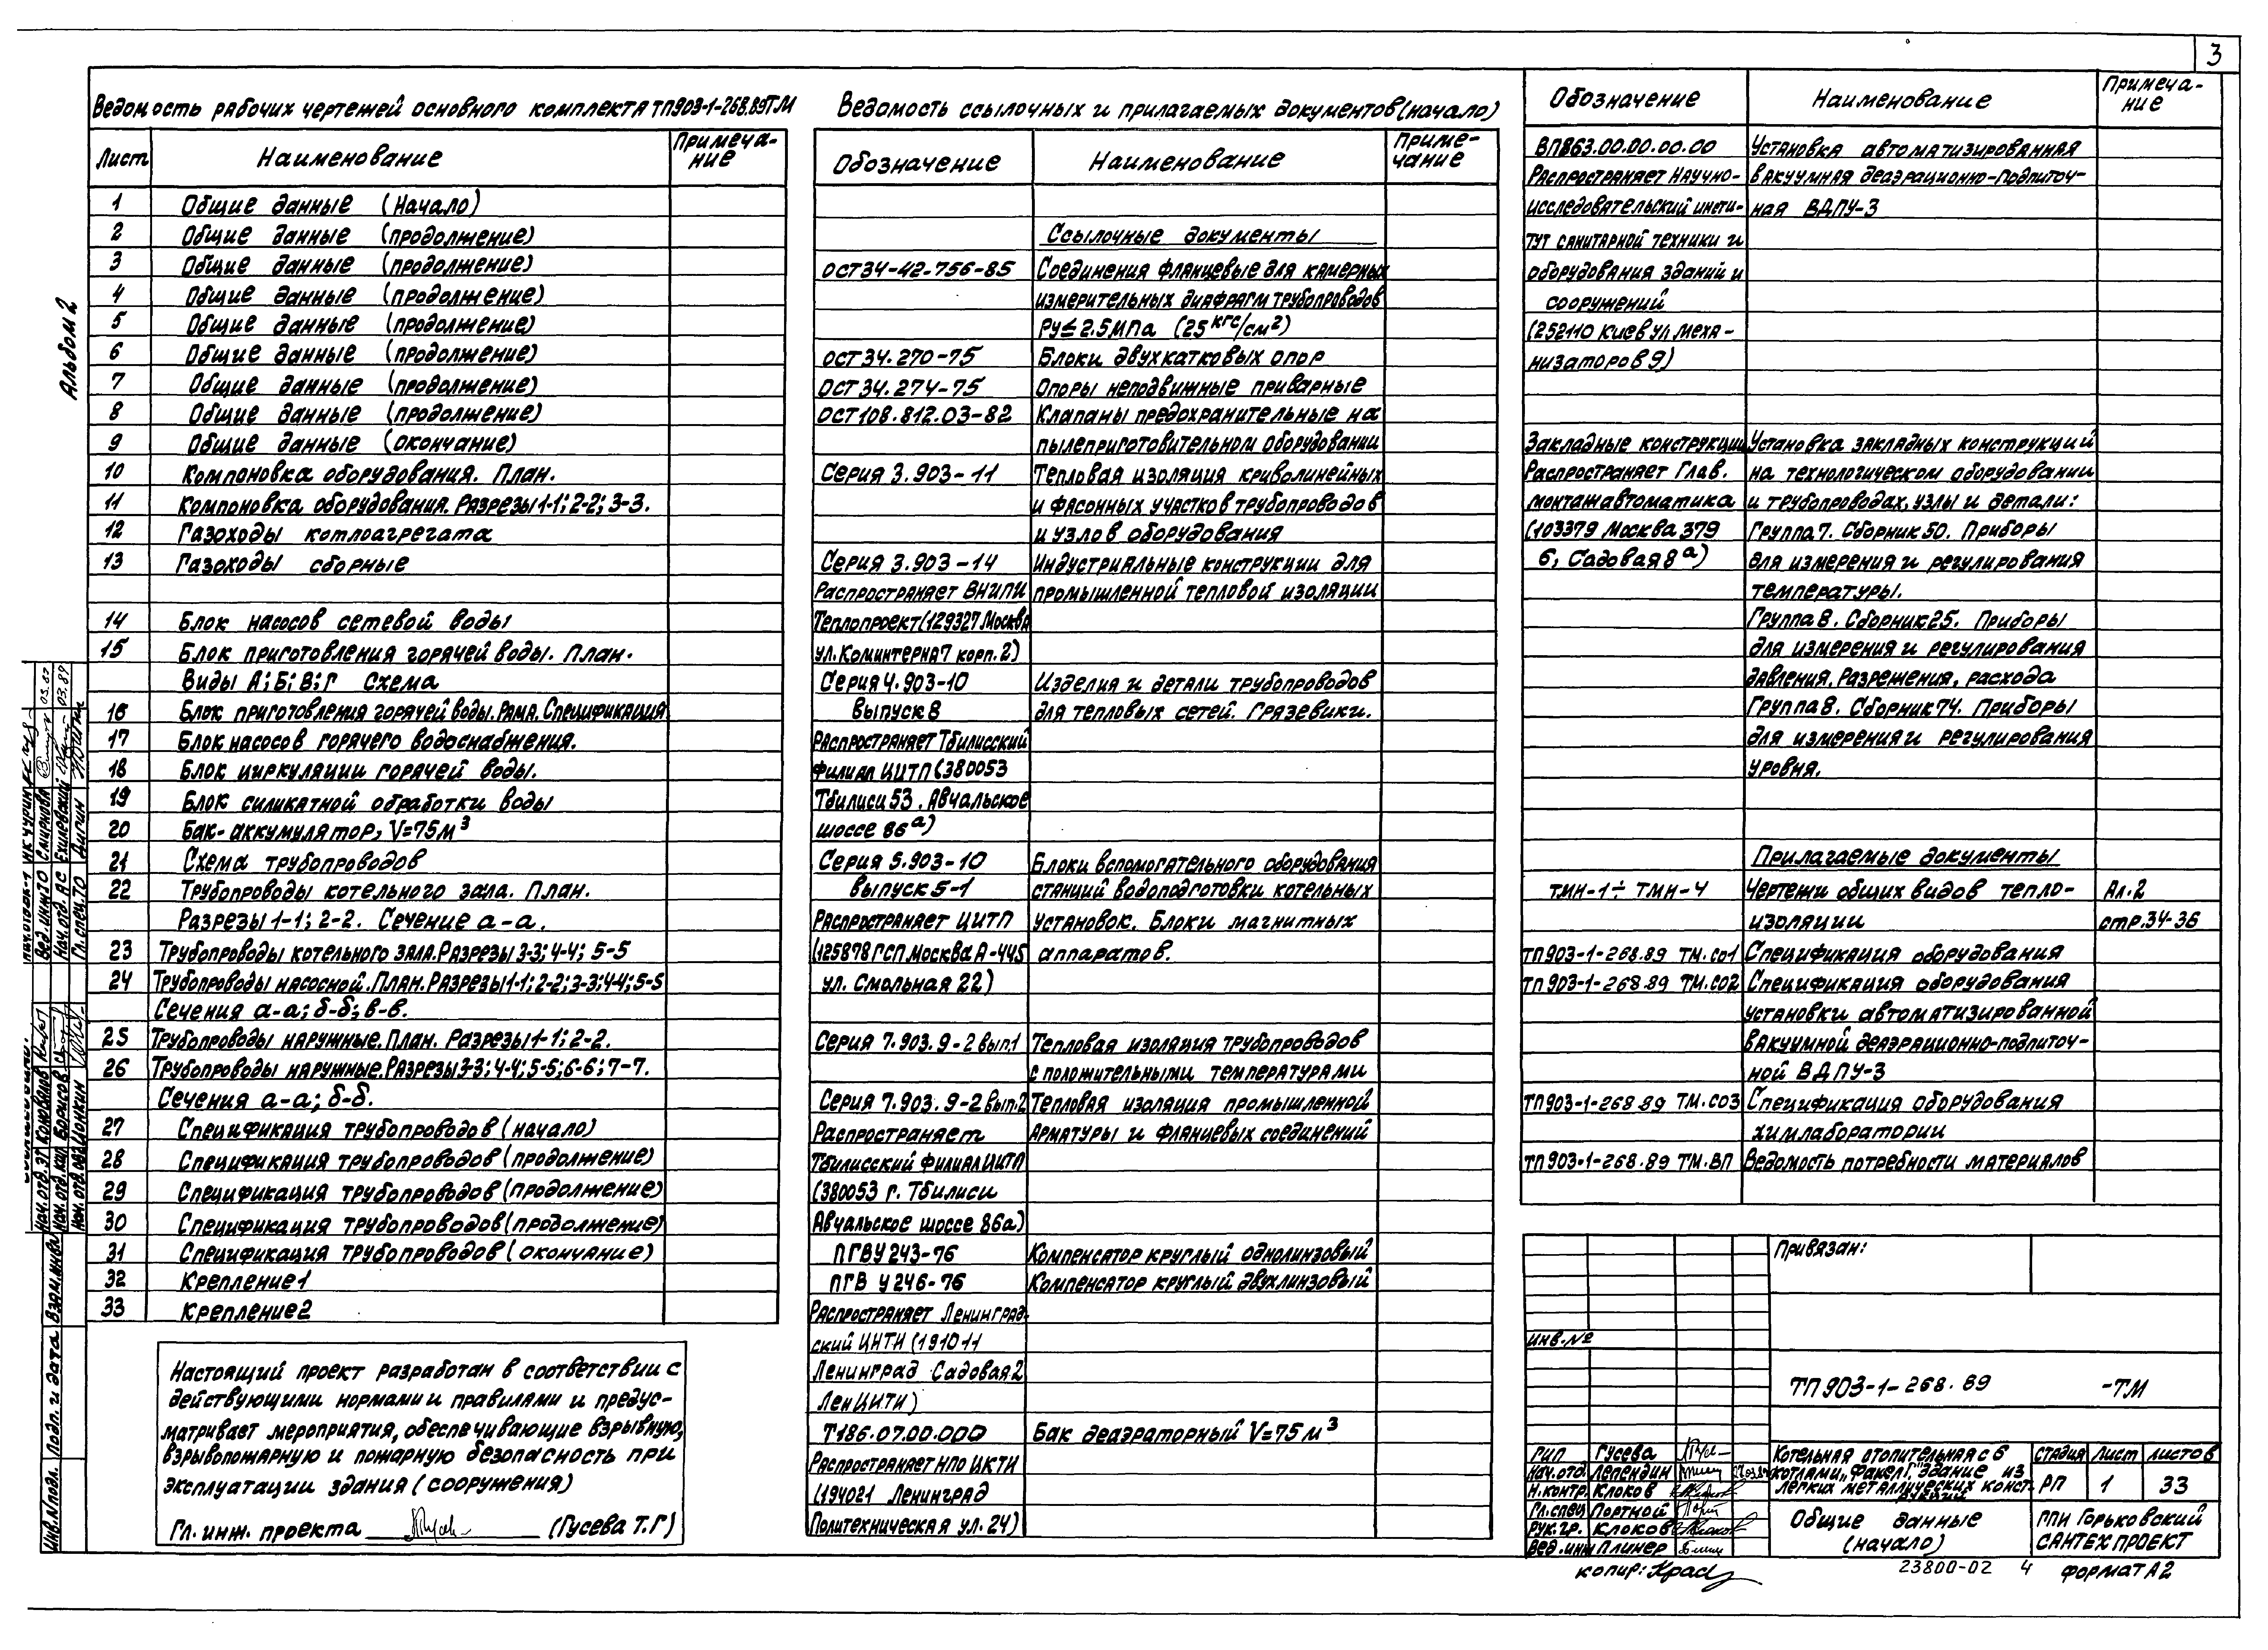 3
Альбом 2
Ведомость рабочих чертежей основного комплекта ТП903-1-268.89ТМ
Лист Наименование Примеча-
ние
1 Общие данные (начало)
2 Общие данные (продолжение)
3 Общие данные (продолжение)
4 Общие данные (продолжение)
5 Общие данные (продолжение)
6 Общие данные (продолжение)
7 Общие данные (продолжение)
8 Общие данные (продолжение)
9 Общие данные (окончание)
10 Компоновка оборудования. План.
11 Компоновка оборудования. Разрезы 1-1; 2-2; 3-3.
12 Газоходы котлоагрегата
13 Газоходы сборные
14 Блок насосов сетевой воды
15 Блок приготовления горячей воды. План.
Виды А; Б; В; Г Схема
16 Блок приготовления горячей воды. Рама. Спецификация
17 Блок насосов горячего водоснабжения.
18 Блок циркуляции горячей воды.
19 Блок силикатной обработки воды
20 Бак-аккумулятор, V=75м³
21 Схема трубопроводов
22 Трубопроводы котельного зала. План.
Разрезы 1-1; 2-2. Сечение а-а.
23 Трубопроводы котельного зала. Разрезы 3-3; 4-4; 5-5
24 Трубопроводы насосной. План. Разрезы 1-1; 2-2; 3-3; 4-4; 5-5
Сечения а-а; б-б; в-в.
25 Трубопроводы наружные. План. Разрезы 1-1; 2-2.
26 Трубопроводы наружные. Разрезы 3-3; 4-4; 5-5; 6-6; 7-7.
Сечения а-а; б-б.
27 Спецификация трубопроводов (начало)
28 Спецификация трубопроводов (продолжение)
29 Спецификация трубопроводов (продолжение)
30 Спецификация трубопроводов (продолжение)
31 Спецификация трубопроводов (окончание)
32 Крепление 1
33 Крепление 2
Настоящий проект разработан в соответствии с
действующими нормами и правилами и предус-
матривает мероприятия, обеспечивающие взрывную,
взрывопожарную и пожарную безопасность при
эксплуатации здания (сооружения)
Гл. инж. проекта (Гусева Т.Г)
Ведомость ссылочных и прилагаемых документов (начало)
Обозначение Наименование Приме-
чание
Ссылочные документы
ОСТ34-42-756-85 Соединения фланцевые для камерных
измерительных диафрагм трубопроводов
Ру≤2.5МПа (25 кгс/см²)
ОСТ 34.270-75 Блоки двухкатковых опор
ОСТ 34.274-75 Опоры неподвижные приварные
ОСТ108.812.03-82 Клапаны предохранительные на
пылеприготовительном оборудовании
Серия 3.903-11 Тепловая изоляция криволинейных
и фасонных участков трубопроводов
и узлов оборудования
Серия 3.903-14 Индустриальные конструкции для
Распространяет ВНИПИ промышленной тепловой изоляции
Теплопроект (129327 Москва
ул. Коминтерна 7 корп. 2)
Серия 4.903-10 Изделия и детали трубопроводов
выпуск 8 для тепловых сетей. Грязевики.
Распространяет Тбилисский
филиал ЦИТП (380053
Тбилиси 53. Авчальское
шоссе 86а)
Серия 5.903-10 Блоки вспомогательного оборудования
выпуск 5-1 станций водоподготовки котельных
Распространяет ЦИТП установок. Блоки магнитных
(125878 ГСП Москва А-445 аппаратов.
ул. Смольная 22)
Серия 7.903.9-2 вып.1 Тепловая изоляция трубопроводов
с положительными температурами
Серия 7.903.9-2 вып.2 Тепловая изоляция промышленной
Распространяет арматуры и фланцевых соединений
Тбилисский филиал ЦИТП
(380053 г. Тбилиси
Авчальское шоссе 86а)
ПГВУ 243-76 Компенсатор круглый однолинзовый
ПГВ У 246-76 Компенсатор круглый двухлинзовый
Распространяет Ленинград-
ский ЦНТИ (191011
Ленинград Садовая 2
ЛенЦНТИ)
Т186.07.00.000 Бак деаэраторный V=75м³
Распространяет НПО ЦКТИ
(194021 Ленинград
Политехническая ул. 24)
Обозначение Наименование Примеча-
ние
ВП863.00.00.00.00 Установка автоматизированная
Распространяет Научно- вакуумная деаэрационно-подпиточ-
исследовательский инсти- ная ВДПУ-3
тут санитарной техники и
оборудования зданий и
сооружений
(252110 Киев ул Меха-
низаторов 9)
Закладные конструкции Установка закладных конструкций
Распространяет Глав. на технологическом оборудовании
монтажавтоматика и трубопроводах, узлы и детали:
(103379 Москва 379 Группа 7. Сборник 50. Приборы
6, Садовая 8а) для измерения и регулирования
температуры.
Группа 8. Сборник 25. Приборы
для измерения и регулирования
давления. Разрежения, расхода
Группа 8. Сборник 74. Приборы
для измерения и регулирования
уровня.
Прилагаемые документы
ТМН-1÷ТМН-4 Чертежи общих видов тепло- Ал.2
изоляции стр.34-36
ТП903-1-268.89 ТМ.СО1 Спецификация оборудования
ТП903-1-268.89 ТМ.СО2 Спецификация оборудования
установки автоматизированной
вакуумной деаэрационно-подпиточ-
ной ВДПУ-3
ТП903-1-268.89 ТМ.СО3 Спецификация оборудования
химлаборатории
ТП903-1-268.89 ТМ.ВП Ведомость потребности материалов
Привязан:
Инв.№
ТП 903-1-268.89 -ТМ
ГИП Гусева
Нач.отд Лепендин
Н.контр. Клоков
Гл.спец Портной
Рук.гр. Клоков
Вед.инж Плинер
Котельная отопительная с 6
котлами „Факел Г". Здание из
легких металлических конст-
рукций
Стадия Лист Листов
РП 1 33
Общие данные
(начало)
ГПИ Горьковский
САНТЕХПРОЕКТ
копир:
23800-02 4 формат А2
Нач. отд. ЭТ Коновалов
Нач. отд. КИП Борисов
Нач. отд. ОВ2 Цонкин
Вед. инж. ТО Смирнова 03.87
Нач. отд. АС Ехилевский 03.89
Гл. спец. ТО
Взам.инв№
Подп. и дата
Инв.№подл.